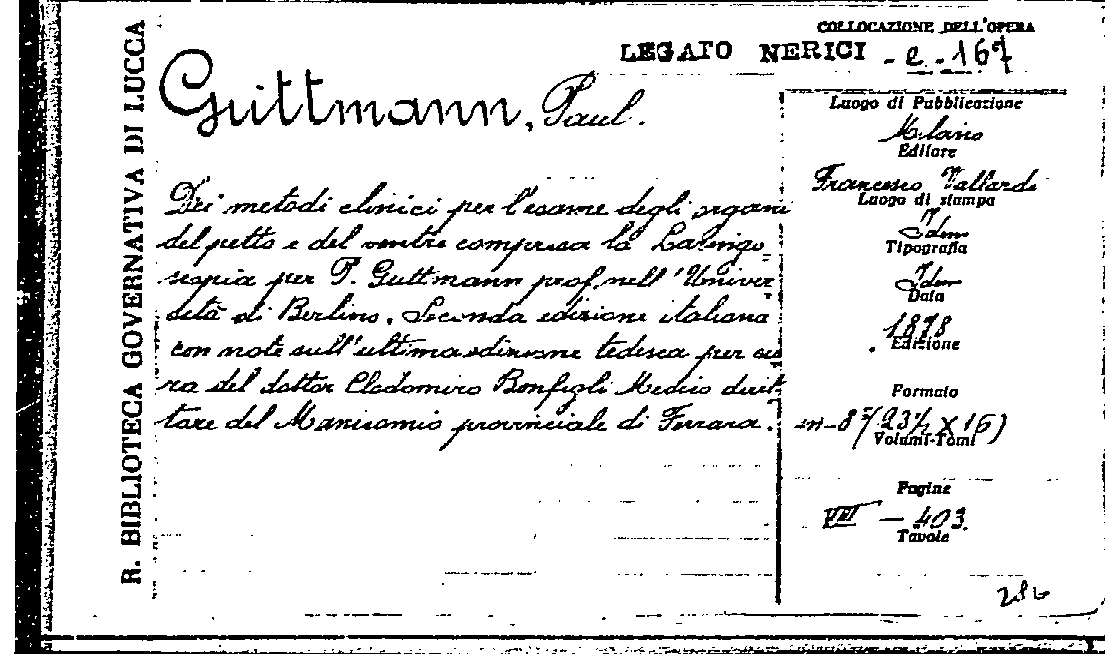 R. BIBLIOTECA GOVERNATIVA DI LUCCA
COLLOCAZIONE DELL'OPERA
LEGATO NERICI - e - 167
Guttmann, Paul.
Dei metodi clinici per l'esame degli organi
del petto e del ventre compresa la Laringo=
scopia per P. Guttmann prof. nell'Univer
sità di Berlino. Seconda edizione italiana
con note sull'ultima edizione tedesca per cu
ra del dottor Clodomiro Bonfigli Medico diret
tore del Manicomio provinciale di Ferrara.
Luogo di Pubblicazione
Milano
Editore
Francesco Vallardi
Luogo di stampa
Idem
Tipografia
Idem
Data
1878
Edizione
Formato
in-8° (23½ X 16)
Volumi-Tomi
Pagine
VIII - 403.
Tavole